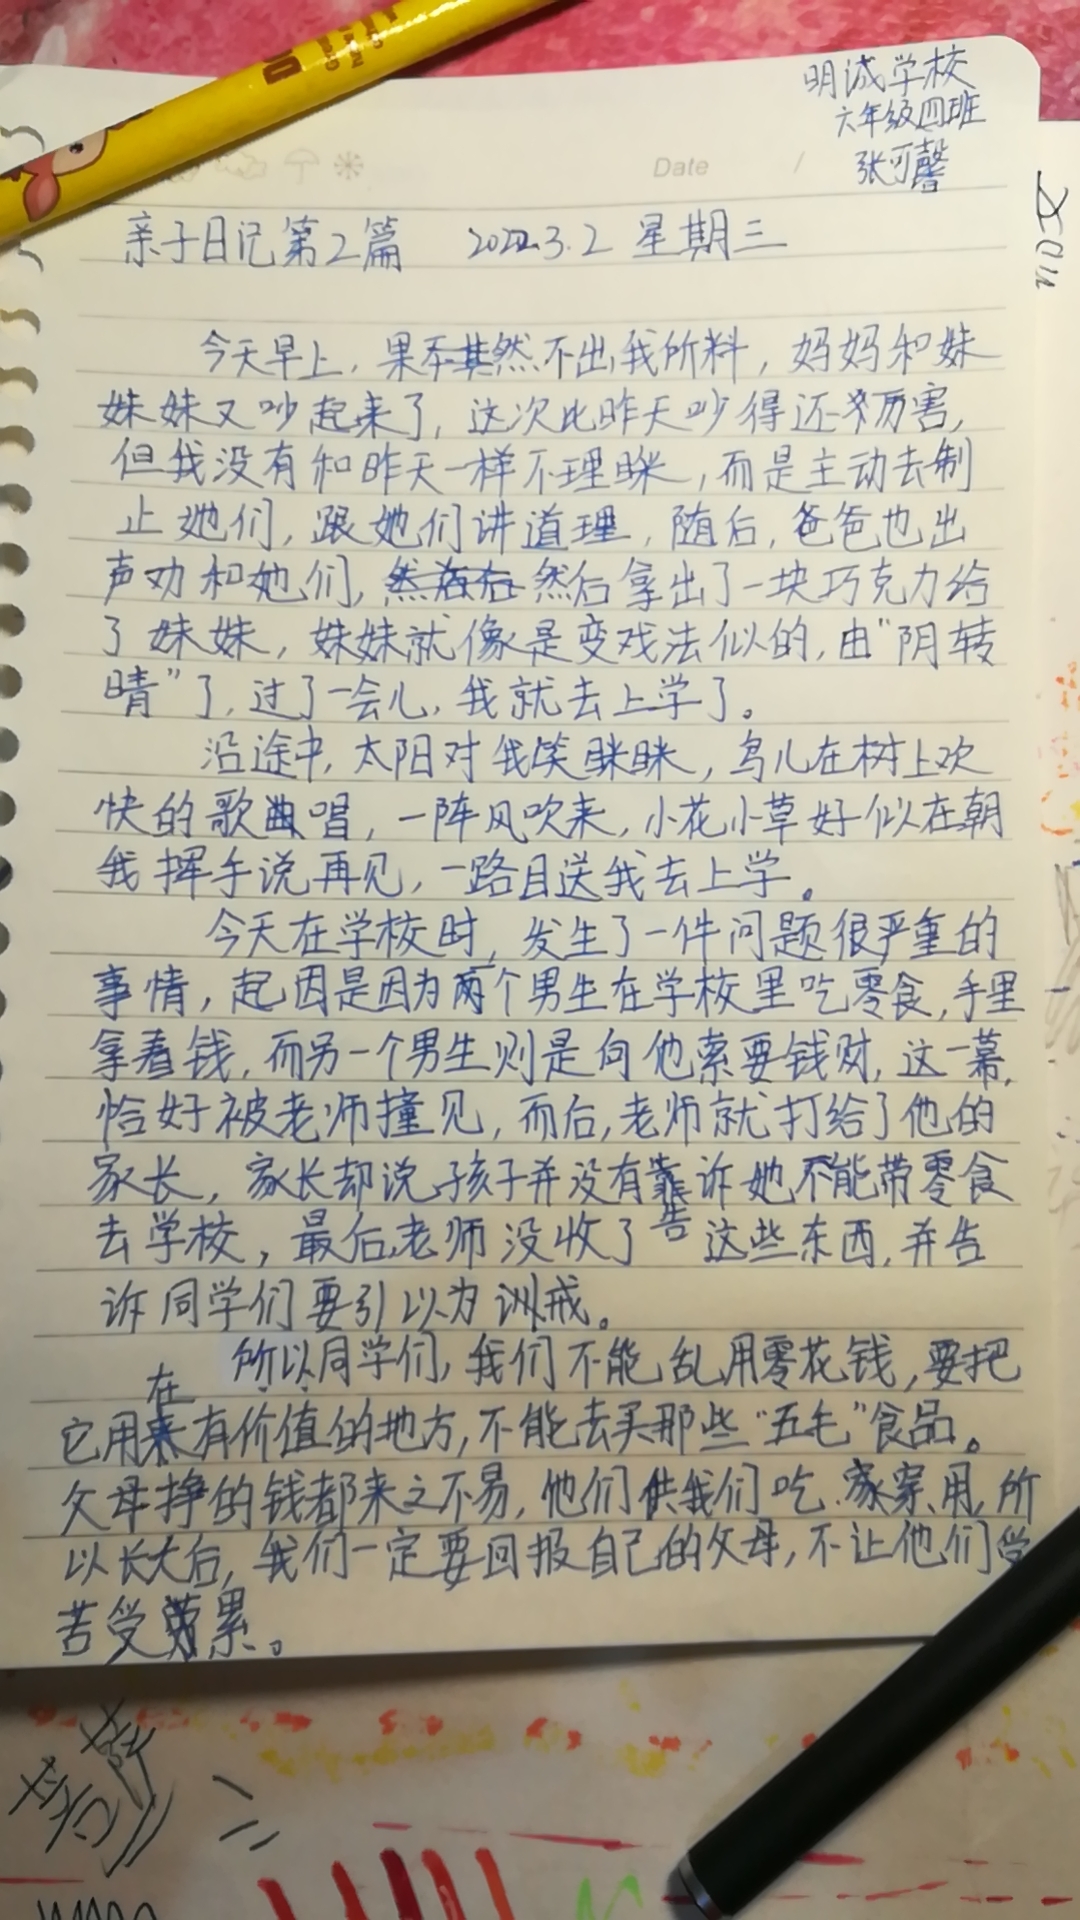 明诚学校
六年级四班
张可馨
Date /
亲子日记第2篇 2022.3.2 星期三
今天早上，果不其然不出我所料，妈妈和妹
妹妹又吵起来了，这次比昨天吵得还要厉害，
但我没有和昨天一样不理睬，而是主动去制
止她们，跟她们讲道理，随后，爸爸也出
声劝和她们，然后拿出了一块巧克力给
了妹妹，妹妹就像是变戏法似的，由“阴转
晴”了，过了一会儿，我就去上学了。
沿途中，太阳对我笑眯眯，鸟儿在树上欢
快的歌唱，一阵风吹来，小花小草好似在朝
我挥手说再见，一路目送我去上学。
今天在学校时，发生了一件问题很严重的
事情，起因是因为两个男生在学校里吃零食，手里
拿着钱，而另一个男生则是向他索要钱财，这一幕，
恰好被老师撞见，而后，老师就打给了他的
家长，家长却说孩子并没有告诉她不能带零食
去学校，最后老师没收了这些东西，并告
诉同学们要引以为训戒。
所以同学们，我们不能乱用零花钱，要把
它用在有价值的地方，不能去买那些“五毛”食品。
父母挣的钱都来之不易，他们供我们吃、穿、用，所
以长大后，我们一定要回报自己的父母，不让他们受
苦受累。